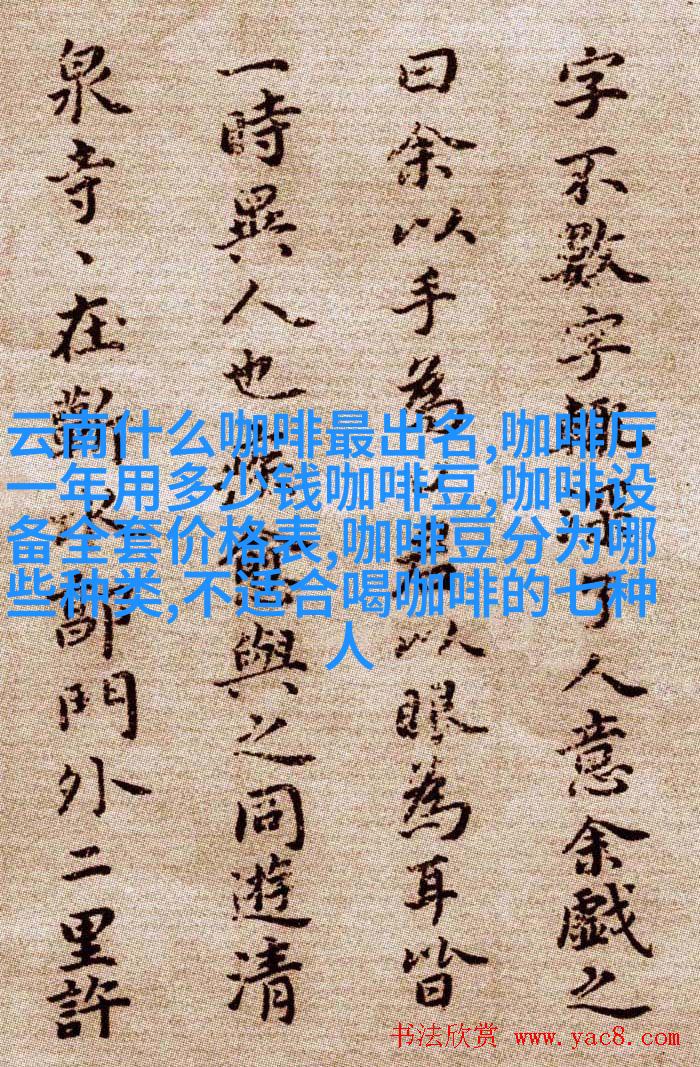 字不數字了人意余戲之
曰余以手為以眼為耳皆
一時異人也與之同遊清
泉寺、在郭門外二里許
云南什么咖啡最出名,咖啡厅
一年用多少钱咖啡豆,咖啡设
备全套价格表,咖啡豆分为哪
些种类,不适合喝咖啡的七种
人
书法欣赏 www.yac8.com